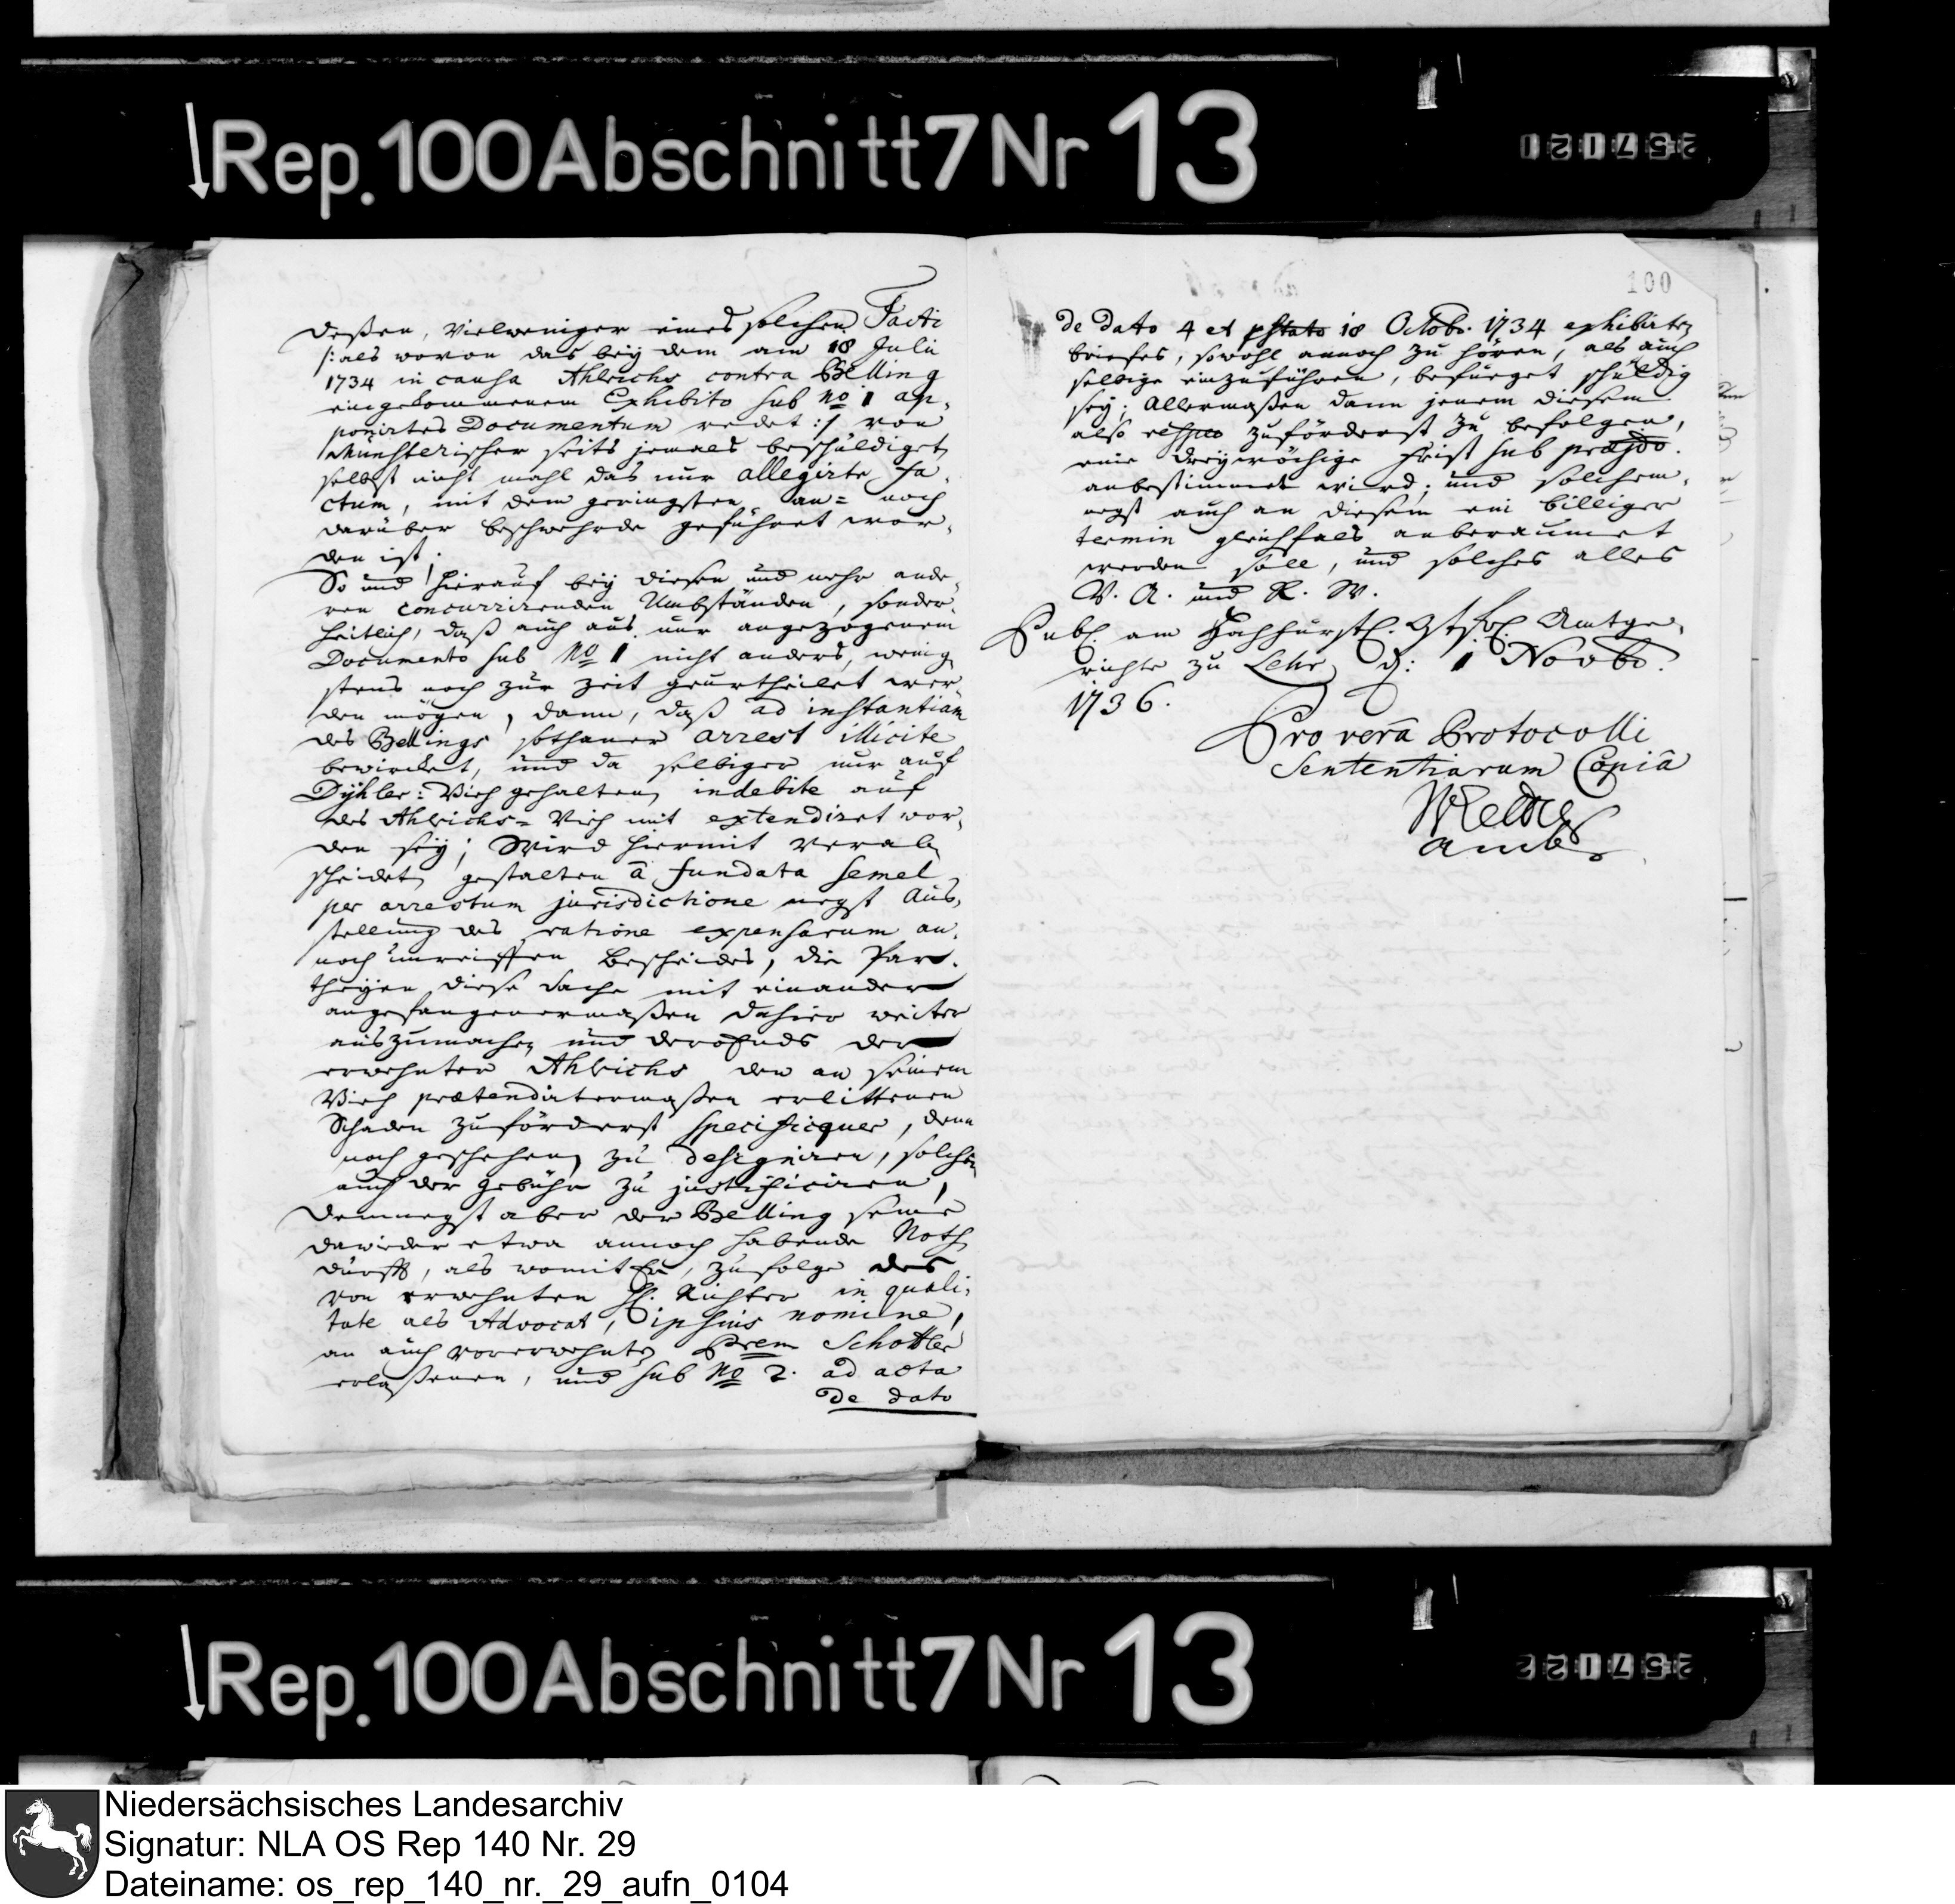 Rep. 100 Abschnitt 7 Nr 13
deßen, Vielweniger eines solchen Facti
/: als wovon das bey dem am 18 Julii
1734 in causa Ahlrichs contra Belling
eingekommenem Exhibito sub No 1 ap-
ponirtes Documentum redet :/ von
Münsterischer seits jemals beschuldiget,
selbst nicht mahl das nur allegirte fa-
ctum, mit dem geringsten an= noch
darüber beschwehrde geführet wor-
den ist;
So und hierauf bey diesen und mehr ande-
ren concurrirenden Umbständen, sonder-
heitlich, daß auch aus nur angezogenem
Documento sub No 1 nicht anders, wenig-
stens noch zur zeit geurtheilet wer-
den mögen, dann, daß ad instantiam
des Bellings sothaner arrest illicite
bewircket, und da selbiger nur auf
Vieh gehalten, indebite auf
des Ahlrichs= Vieh mit extendiret wor-
den sey; Wird hiermit verab-
scheidet, gestalten â fundata semel
per arrestum jurisdictione negst Aus-
stellung des ratione expensarum an-
noch unreiffen Bescheides, die Par-
theyen diese Sache mit einander
angefangenermaßen dahier weiter
auszumachen und der
erwehnter Ahlrichs den an seinem
Vieh prætendirtermaßen erlittenen
Schaden zuförderst specificquer, dem-
nach geschehen, zu designiren, solchen
auch der gebühr zu justificiren,
Demnegst aber der Belling seine
dawieder etwa annoch habende Noth-
durfft, als womit Er, zufolge des
von erwehnten H. Richter in quali-
tate als Advocat, ipsius nomine,
an auch vorerwehnten Schottler
erlaßenen, und sub No 2. ad acta
de dato
100
de dato 4 et pstato 18 Octobr. 1734 exhibirten
briefes, sowohl annoch zu hören, als auch
selbige einzuführen, befueget schuldig
sey; Allermaßen dann jenem diesem
also zuförderst zu befolgen,
eine dreywöchige frist sub præjdo.
anbestimmet wird; und solchem-
negst auch an diesem ein billiger
termin gleichfals anberaumet
werden solle, und solches alles
V. A. und R. W.
Publ. am Hochfürstl. Amtge-
richte zu Lehr d: 1 Novbr.
1736.
Pro verâ Protocolli
Sententiarum Copiâ
Rep. 100 Abschnitt 7 Nr 13
Niedersächsisches Landesarchiv
Signatur: NLA OS Rep 140 Nr. 29
Dateiname: os_rep_140_nr._29_aufn_0104